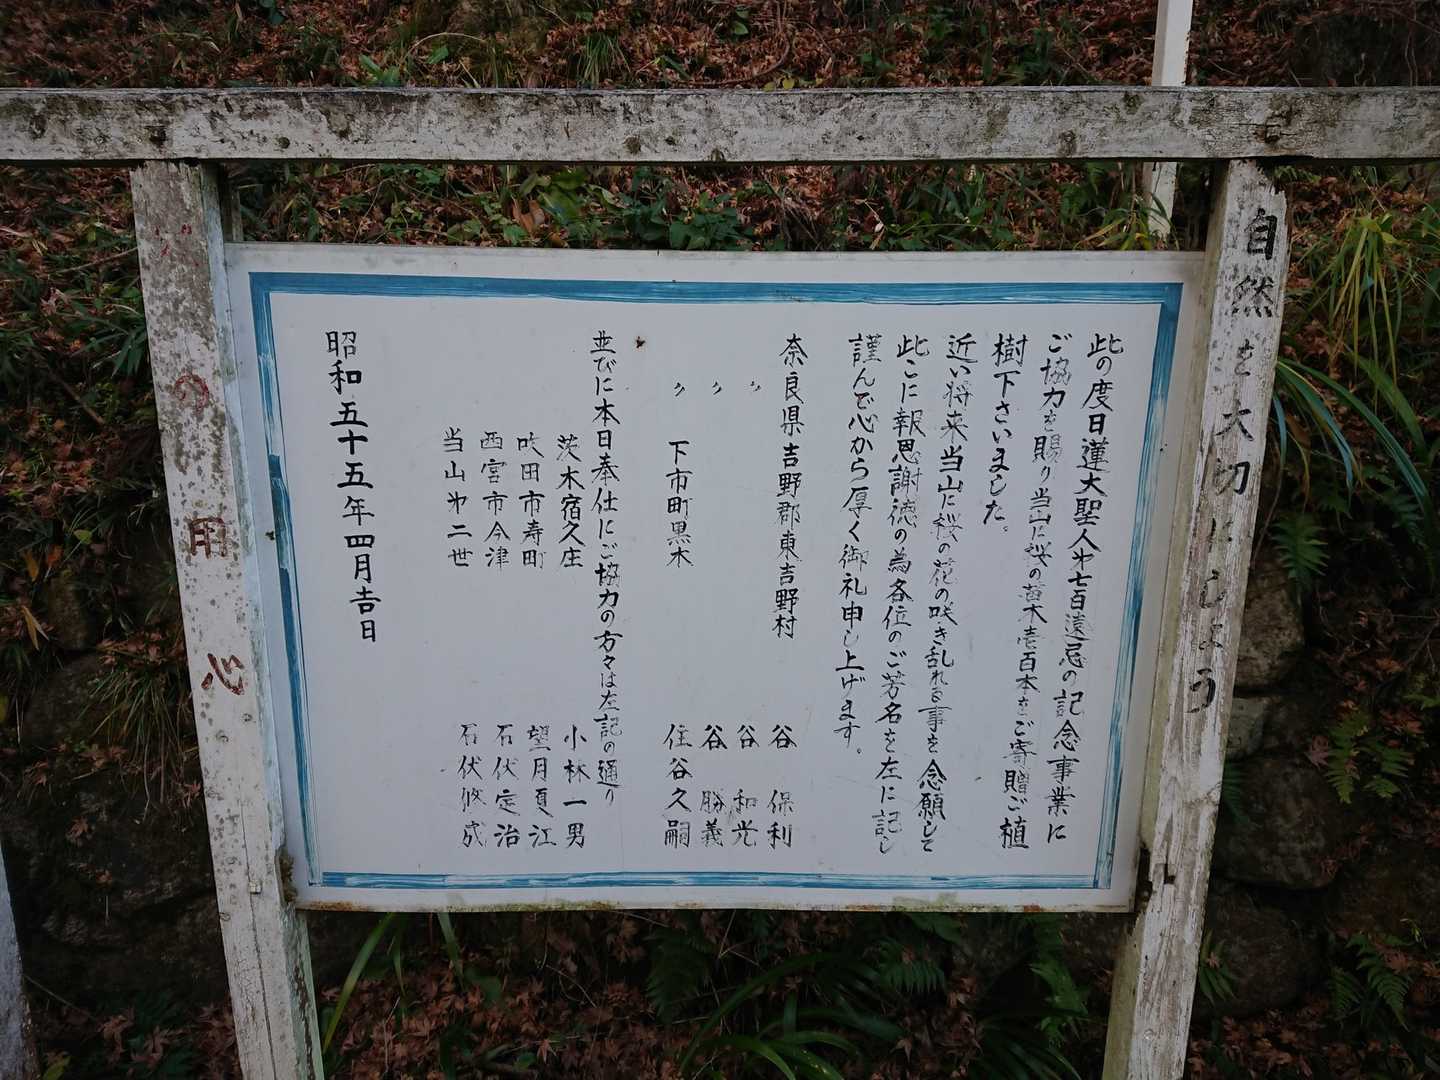 自然を大切にしましょう
此の度日蓮大聖人㐧七百遠忌の記念事業に
ご協力を賜り当山に桜の苗木壱百本をご寄贈ご植
樹下さいました。
近い将来当山に桜の花の咲き乱れる事を念願して
此こに報恩謝徳の為各位のご芳名を左に記し
謹んで心から厚く御礼申し上げます。
奈良県吉野郡東吉野村 谷 保利
〃 谷 和光
〃 谷 勝義
〃 下市町黒木 住谷久嗣
並びに本日奉仕にご協力の方々は左記の通り
茨木宿久庄 小林一男
吹田市寿町 望月夏江
西宮市今津 石伏定治
当山㐧二世 石伏修成
昭和五十五年四月吉日
火の用心